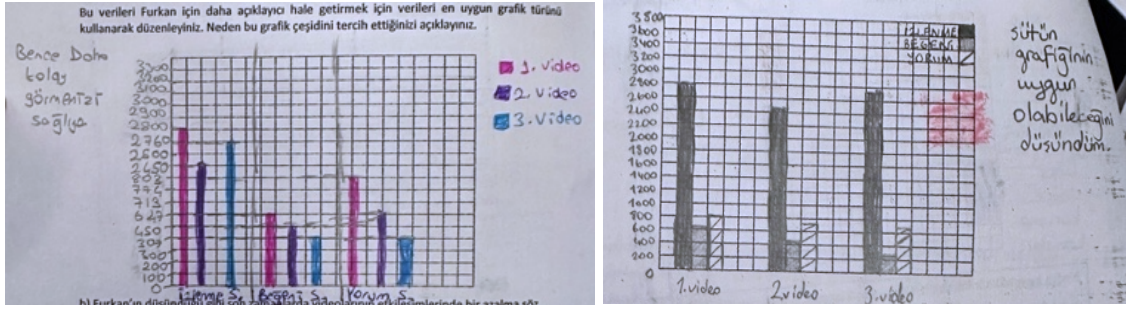 Bu verileri Furkan için daha açıklayıcı hale getirmek için verileri en uygun grafik türünü
kullanarak düzenleyiniz. Neden bu grafik çeşidini tercih ettiğinizi açıklayınız.
Bence Daha
kolay
görmemizi
sağlıyo
3300
3200
3100
3000
2900
2800
2760
2600
2450
802
774
713
627
450
307
300
200
100
0
1. Video
2 Video
3. Video
İzleme S. Beğeni S. Yorum S.
b) Furkan'ın düşündüğü gibi son zamanlarda videolarının etkileşimlerinde bir azalma söz
3800
3600
3400
3200
3000
2800
2600
2400
2200
2000
1800
1600
1400
1200
1000
800
600
400
200
0
İZLENME
BEĞENİ
YORUM
1.video 2.video 3.video
sütün
grafiğinin
uygun
olabileceğini
düşündüm.